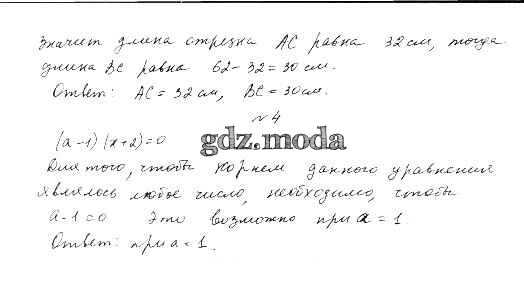 значит длина отрезка АС равна 32 см, тогда
длина ВС равна 62-32=30 см.
Ответ: АС = 32 см, ВС = 30 см.
№ 4
(а-1)(х+2)=0
gdz.moda
Для того, чтобы корнем данного уравнения
являлось любое число, необходимо, чтобы
а-1=0 Это возможно при а = 1
Ответ: при а = 1.